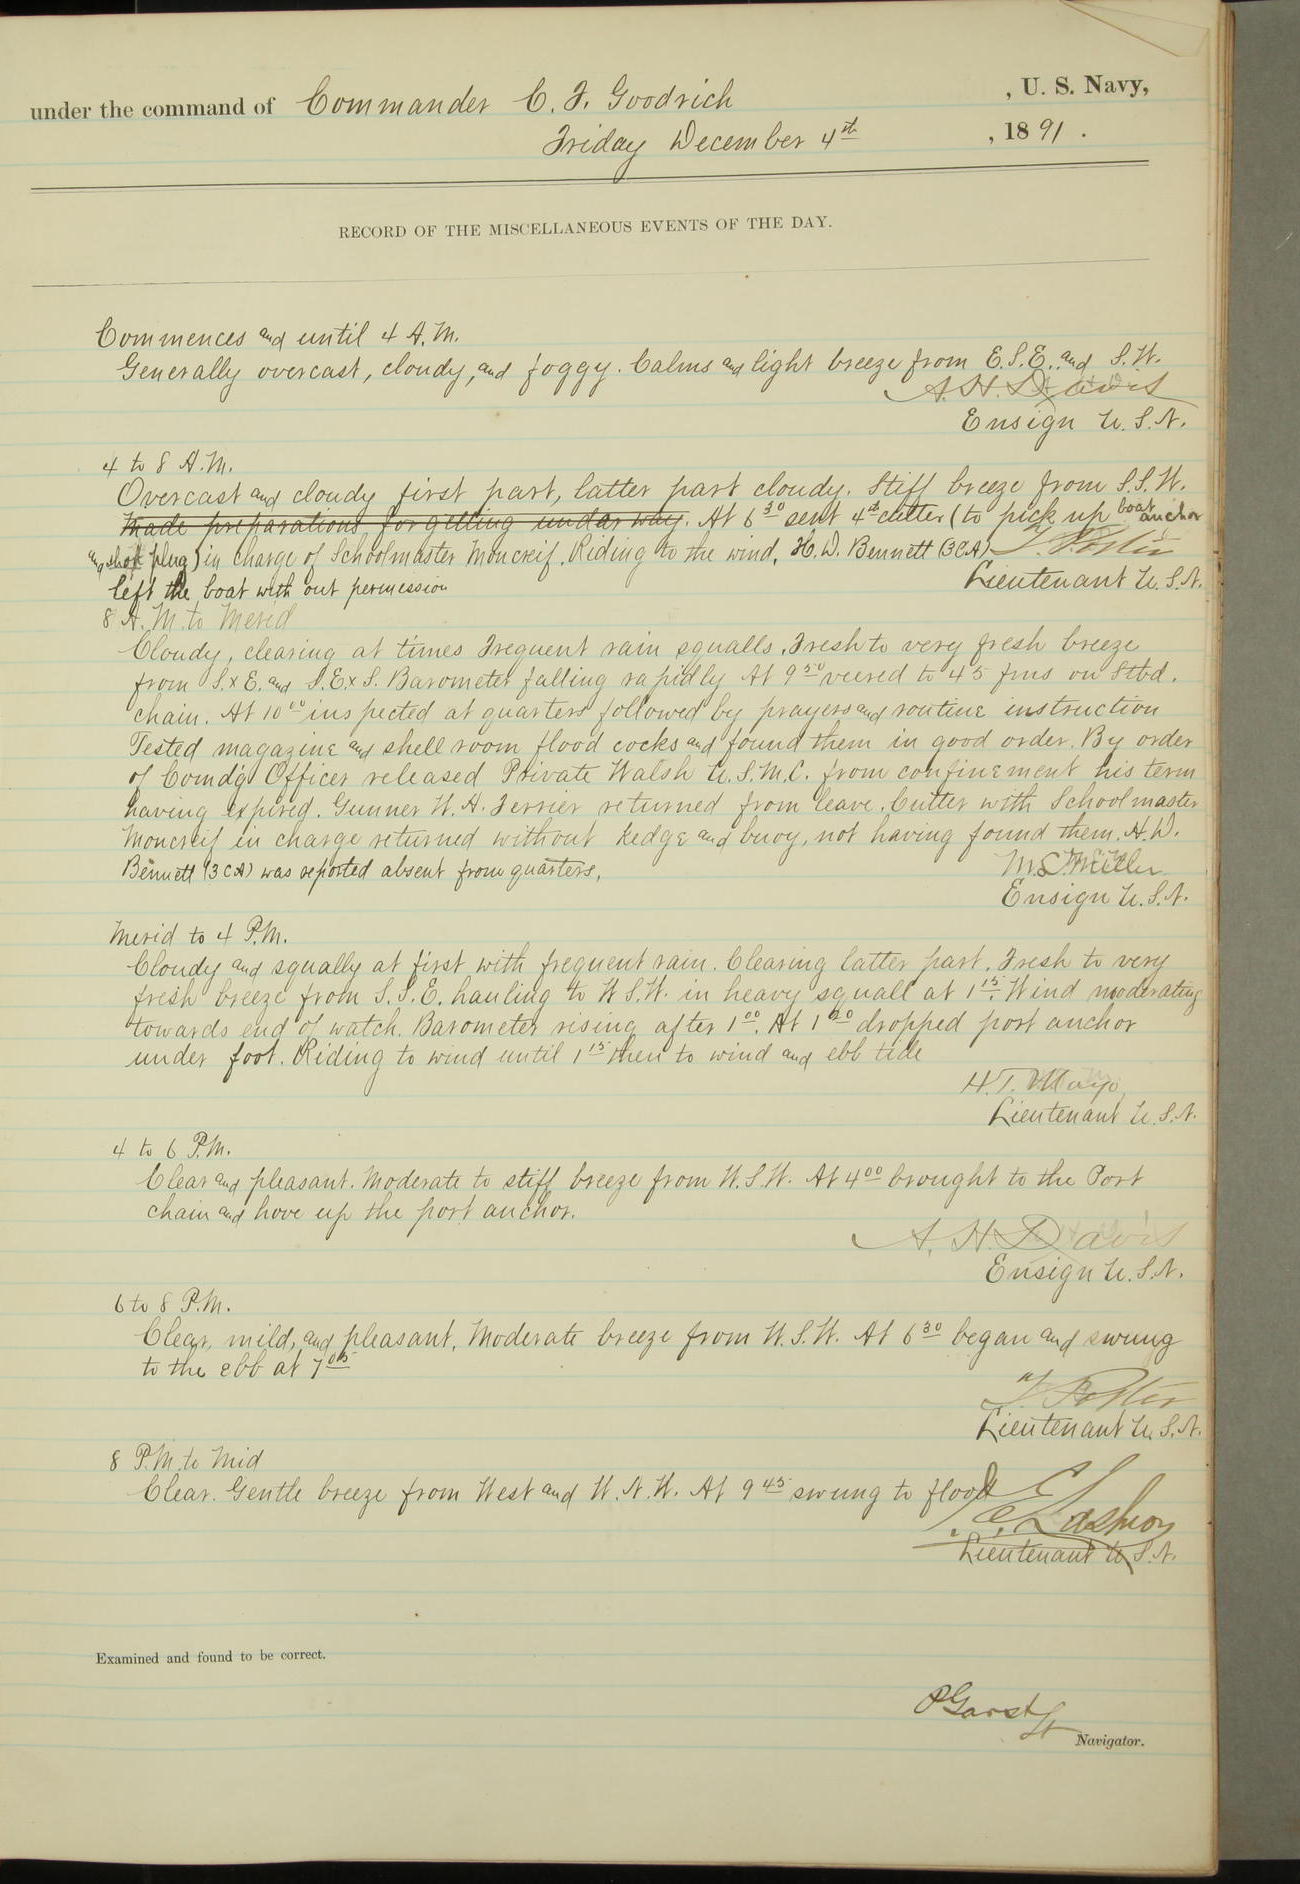 under the command of Commander C. F. Goodrich , U. S. Navy,
Friday December 4th , 1891.
RECORD OF THE MISCELLANEOUS EVENTS OF THE DAY.
Commences and until 4 A.M.
Generally overcast, cloudy, and foggy. Calms and light breeze from E.S.E. and S.W.
A. H. Davis
Ensign U.S.N.
4 to 8 A.M.
Overcast and cloudy first part, latter part cloudy. Stiff breeze from S.S.W.
Made preparations for getting under way. At 6 30 sent 4th cutter (to pick up boat anchor
and plug) in charge of Schoolmaster Moncreif. Riding to the wind. H. W. Bennett (3CA)
left the boat with out permission
Lieutenant U.S.N.
8 A.M. to Merid
Cloudy, clearing at times Frequent rain squalls. Fresh to very fresh breeze
from S.x E. and S.E.x S. Barometer falling rapidly At 9 50 veered to 45 fms on Stbd.
chain. At 10 00 inspected at quarters followed by prayers and routine instruction
Tested magazine and shell room flood cocks and found them in good order. By order
of Comdg Officer released Private Walsh U.S.M.C. from confinement his term
having expired. Gunner W. A. Ferrier returned from leave. Cutter with Schoolmaster
Moncreif in charge returned without kedge and buoy, not having found them. H. W.
Bennett (3CA) was reported absent from quarters.
Ensign U.S.N.
Merid to 4 P.M.
Cloudy and squally at first with frequent rain. Clearing latter part. Fresh to very
fresh breeze from S.S.E. hauling to W.S.W. in heavy squall at 1 15. Wind moderating
towards end of watch. Barometer rising after 1 00. At 1 20 dropped port anchor
under foot. Riding to wind until 1 15 then to wind and ebb tide
H. T. Mayo
Lieutenant U.S.N.
4 to 6 P.M.
Clear and pleasant. Moderate to stiff breeze from W.S.W. At 4 00 brought to the Port
chain and hove up the port anchor.
A. H. Davis
Ensign U.S.N.
6 to 8 P.M.
Clear, mild, and pleasant. Moderate breeze from W.S.W. At 6 30 began and swung
to the ebb at 7 05
Lieutenant U.S.N.
8 P.M. to Mid
Clear. Gentle breeze from West and W.N.W. At 9 45 swung to flood
Lieutenant U.S.N.
Examined and found to be correct.
P Garst
Lt
Navigator.